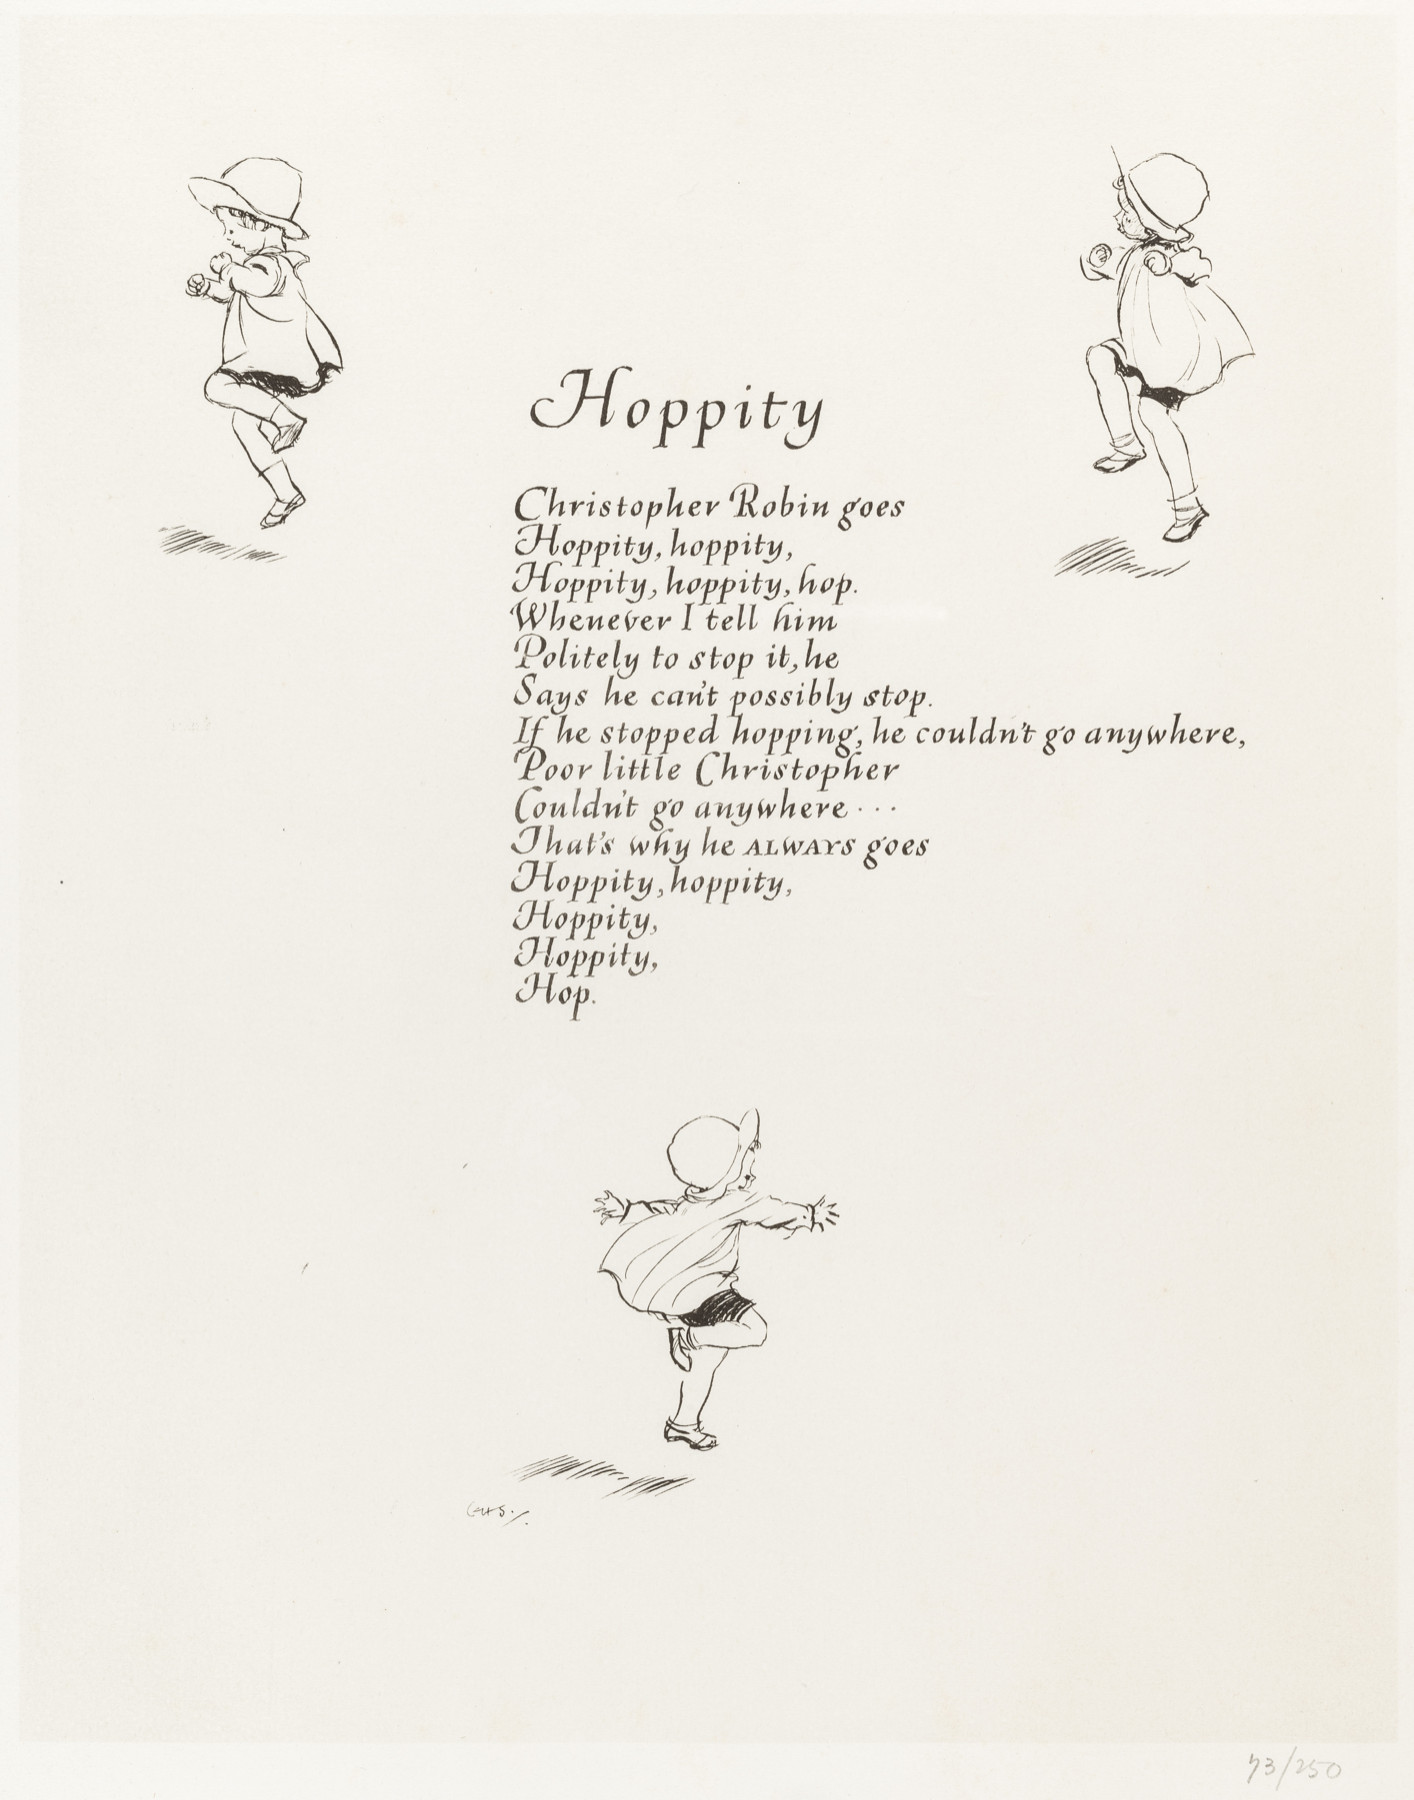 Hoppity
Christopher Robin goes
Hoppity, hoppity,
Hoppity, hoppity, hop.
Whenever I tell him
Politely to stop it, he
Says he can't possibly stop.
If he stopped hopping, he couldn't go anywhere,
Poor little Christopher
Couldn't go anywhere ...
That's why he ALWAYS goes
Hoppity, hoppity,
Hoppity,
Hoppity,
Hop.
EHS.
73/250